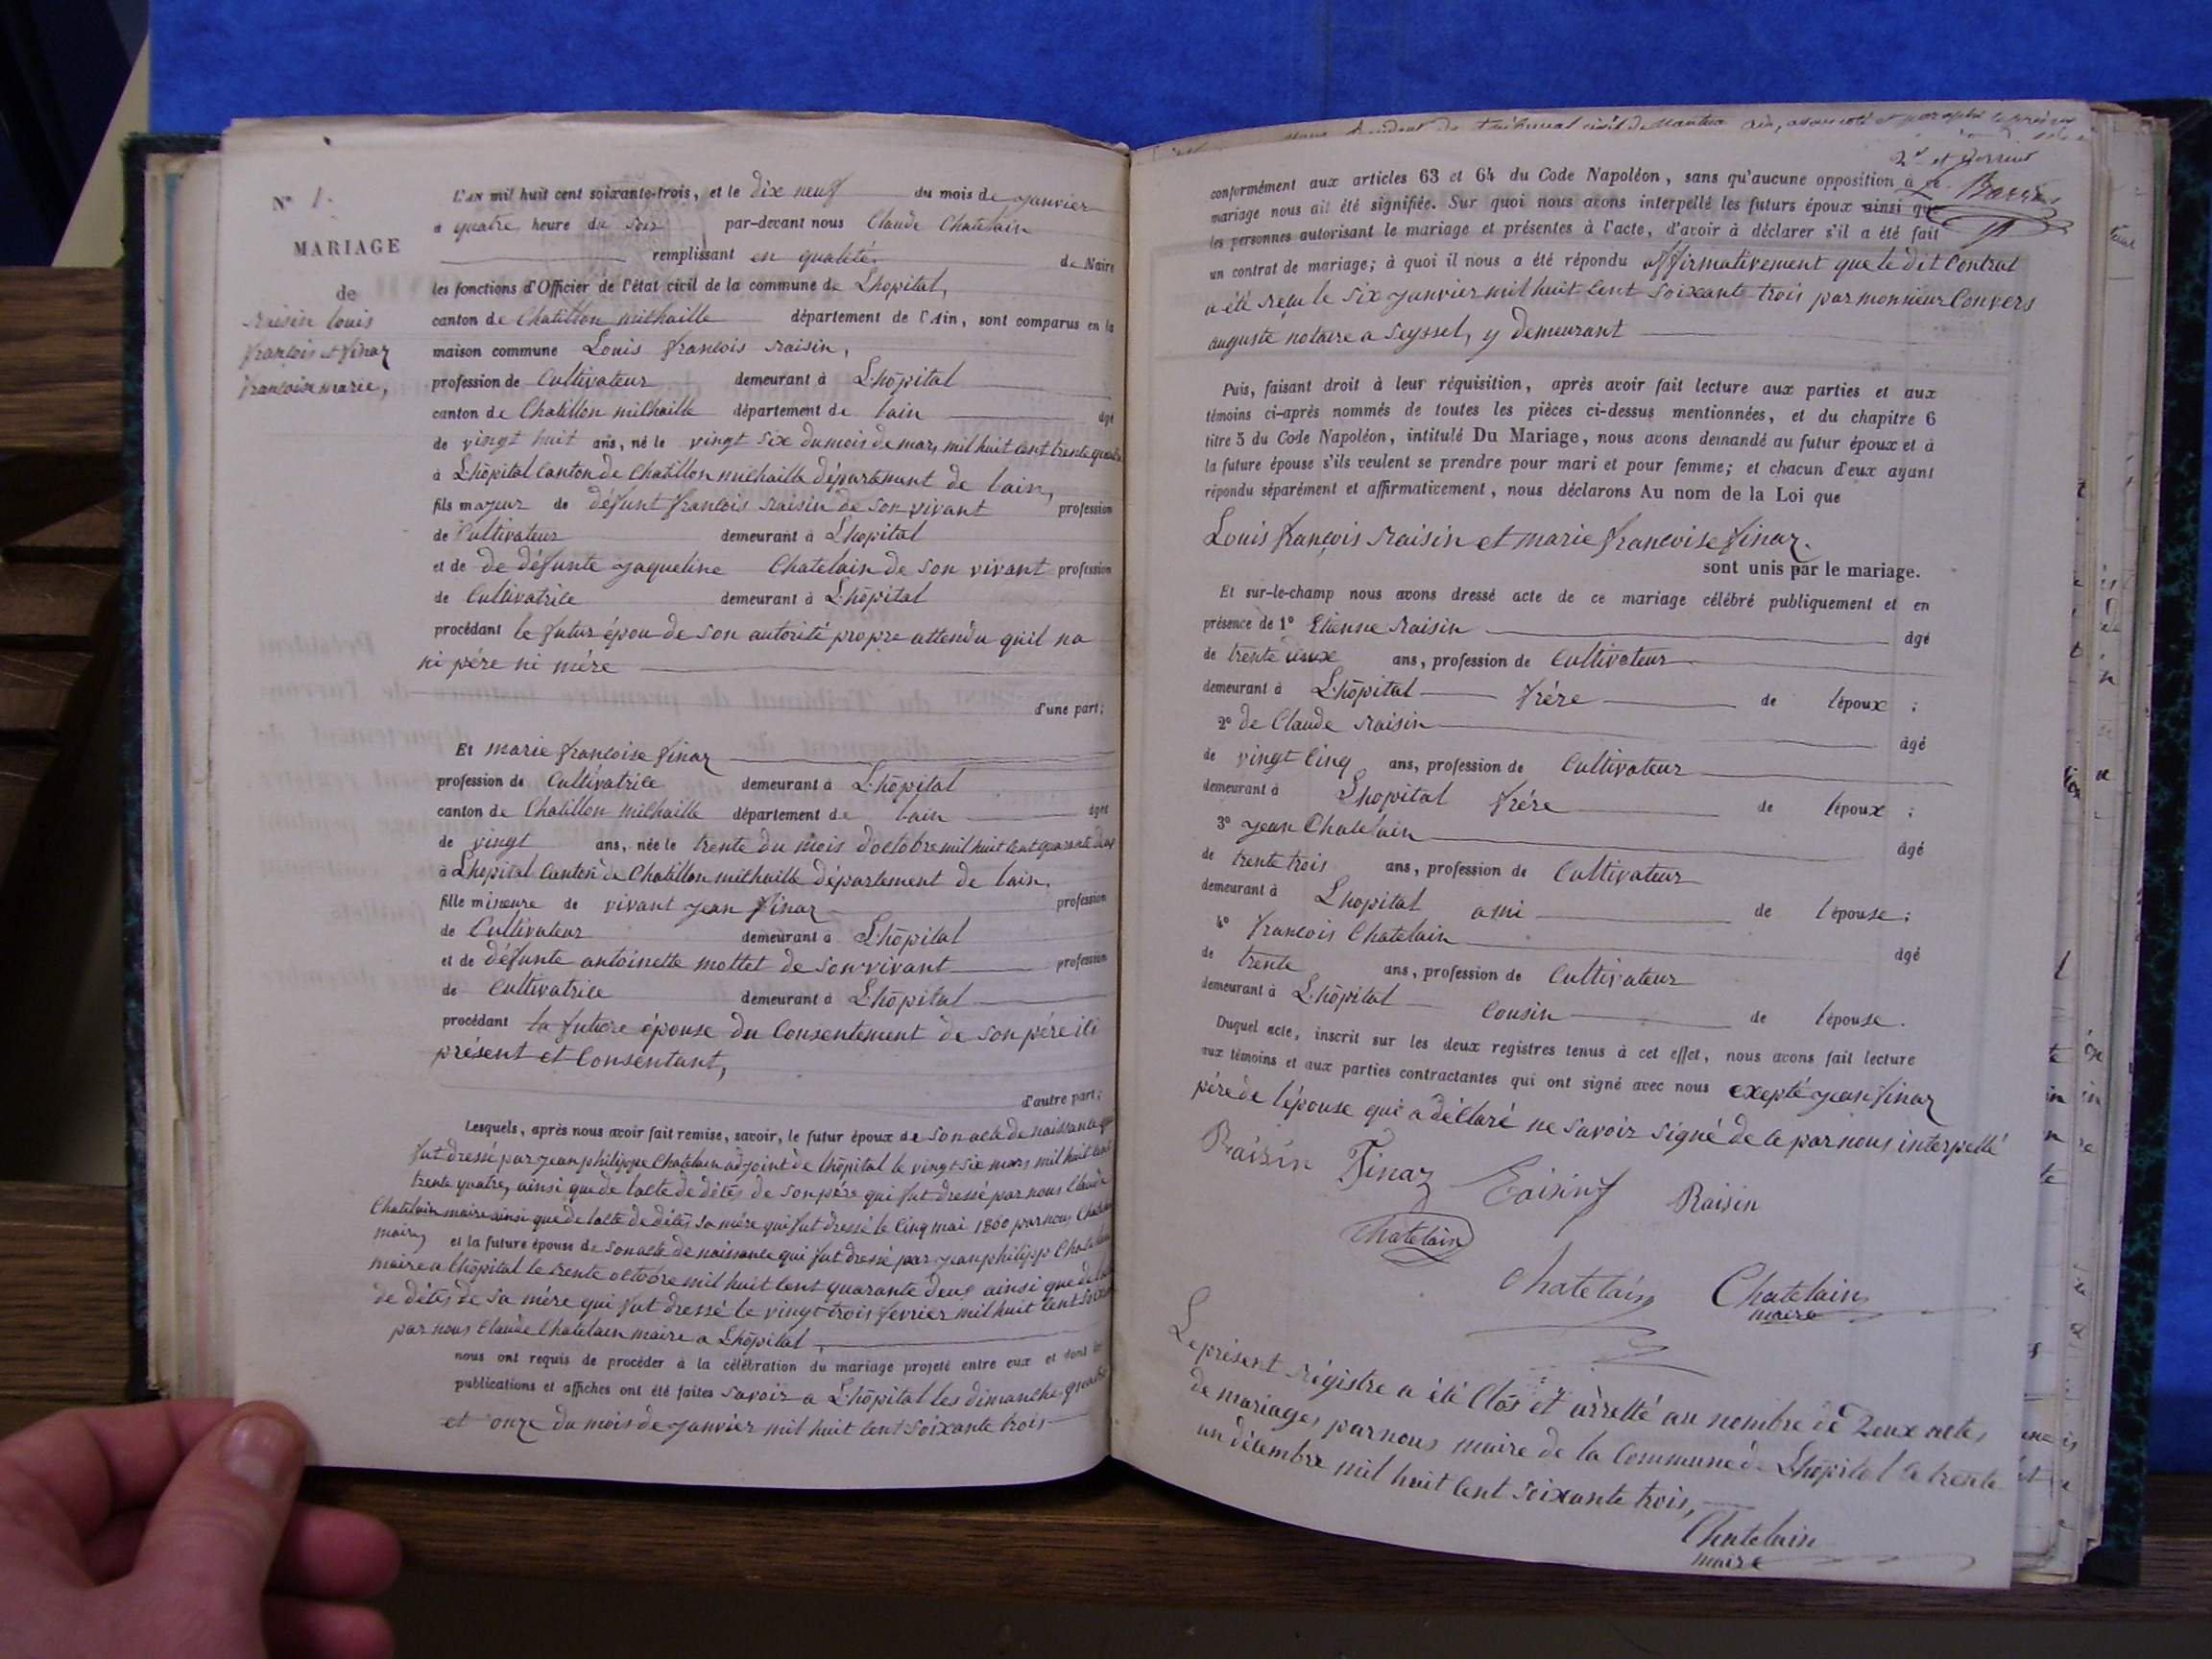 N° 1.
MARIAGE
de
raisin louis
françois et finaz
françoise marie,
L'AN mil huit cent soixante-trois, et le dix neuf du mois de janvier
à quatre heure du soir par-devant nous Claude Chatelain
remplissant en qualité de Maire
les fonctions d'Officier de l'état civil de la commune de Lhopital,
canton de Chatillon michaille département de l'Ain, sont comparus en la
maison commune Louis françois raisin,
profession de Cultivateur demeurant à L'hôpital
canton de Chatillon michaille département de lain âgé
de vingt huit ans, né le vingt six du mois de mars mil huit cent trente quatre
à L'hôpital Canton de Chatillon michaille département de lain,
fils majeur de défunt françois raisin de son vivant profession
de Cultivateur demeurant à Lhopital
et de de défunte jaqueline Chatelain de son vivant profession
de Cultivatrice demeurant à L'hôpital
procédant le futur épou de son autorité propre attendu quil na
ni pére ni mére
d'une part;
Et marie françoise finaz
profession de Cultivatrice demeurant à L'hôpital
canton de Chatillon michaille département de lain âgée
de vingt ans, née le trente du mois d'octobre mil huit cent quarante deux
à Lhopital Canton de Chatillon michaille département de lain,
fille mineure de vivant jean finaz profession
de Cultivateur demeurant à L'hôpital
et de défunte antoinette mottet de son vivant profession
de Cultivatrice demeurant à L'hôpital
procédant la future épouse du Consentement de son pére ici
présent et Consentant,
d'autre part;
Lesquels, après nous avoir fait remise, savoir, le futur époux de son acte de naissance qui
fut dressé par jean philippe Chatelain adjoint de lhôpital le vingt six mars mil huit cent
trente quatre, ainsi que de lacte de décés de son pére qui fut dressé par nous Claude
Chatelain maire ainsi que de lacte de décés sa mére qui fut dressé le Cinq mai 1860 par nous Chatelain
maire, et la future épouse de son acte de naissance qui fut dressé par jean philipp Chatelain
maire a lhôpital le trente octobre mil huit cent quarante deux ainsi que de lacte
de décés de sa mére qui fut dressé le vingt trois fevrier mil huit cent
par nous Claude Chatelain maire a L'hôpital
nous ont requis de procéder à la célébration du mariage projeté entre eux et dont les
publications et affiches ont été faites savoir a L'hôpital les dimanche quatre
et onze du mois de janvier mil huit cent soixante trois
2e et dernier
Barras
conformément aux articles 63 et 64 du Code Napoléon, sans qu'aucune opposition à ce
mariage nous ait été signifiée. Sur quoi nous avons interpellé les futurs époux ainsi que
les personnes autorisant le mariage et présentes à l'acte, d'avoir à déclarer s'il a été fait
un contrat de mariage; à quoi il nous a été répondu affirmativement que le dit Contrat
a été reçu le six janvier mil huit cent soixante trois par monsieur Convers
auguste notaire a Seyssel, y demeurant
Puis, faisant droit à leur réquisition, après avoir fait lecture aux parties et aux
témoins ci-après nommés de toutes les pièces ci-dessus mentionnées, et du chapitre 6
titre 5 du Code Napoléon, intitulé Du Mariage, nous avons demandé au futur époux et à
la future épouse s'ils veulent se prendre pour mari et pour femme; et chacun d'eux ayant
répondu séparément et affirmativement, nous déclarons Au nom de la Loi que
Louis françois raisin et marie francoise finaz.
sont unis par le mariage.
Et sur-le-champ nous avons dressé acte de ce mariage célébré publiquement et en
présence de 1° Etienne raisin âgé
de trente ans, profession de Cultivateur
demeurant à L'hôpital frére de lépoux ;
2° de Claude raisin âgé
de vingt Cinq ans, profession de Cultivateur
demeurant à Lhopital frére de lépoux ;
3° jean Chatelain âgé
de trente trois ans, profession de Cultivateur
demeurant à Lhopital ami de lépouse ;
4° françois Chatelain âgé
de trente ans, profession de Cultivateur
demeurant à L'hôpital Cousin de lépouse.
Duquel acte, inscrit sur les deux registres tenus à cet effet, nous avons fait lecture
aux témoins et aux parties contractantes qui ont signé avec nous exepté jean finaz
pére de l'épouse qui a déclaré ne savoir signé de ce par nous interpellé
Raisin Finaz Raisin
Chatelain
Chatelain Chatelain
maire
Le présent régistre a été Clos et arretté au nombre de Deux actes
de mariages par nous maire de la Commune de Lhôpital le trente
un décembre mil huit cent soixante trois,
Chatelain
maire